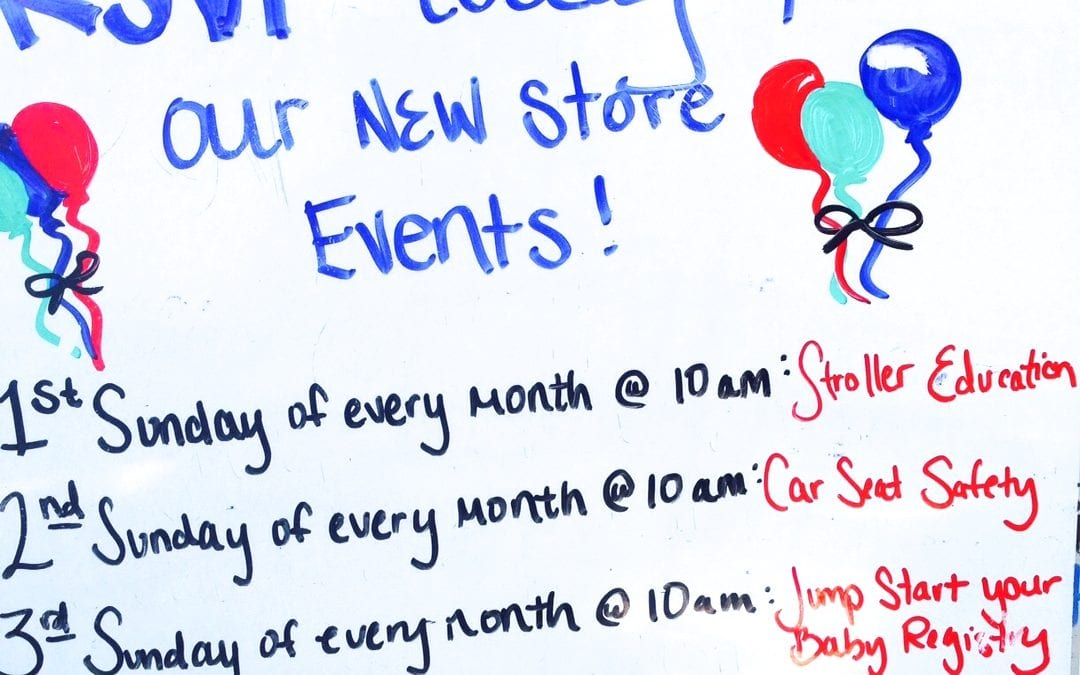 RSVP today
our NEW Store
Events!
1st Sunday of every Month @ 10am: Stroller Education
2nd Sunday of every Month @ 10am: Car Seat Safety
3rd Sunday of every Month @ 10am: Jump Start your
Baby Registry